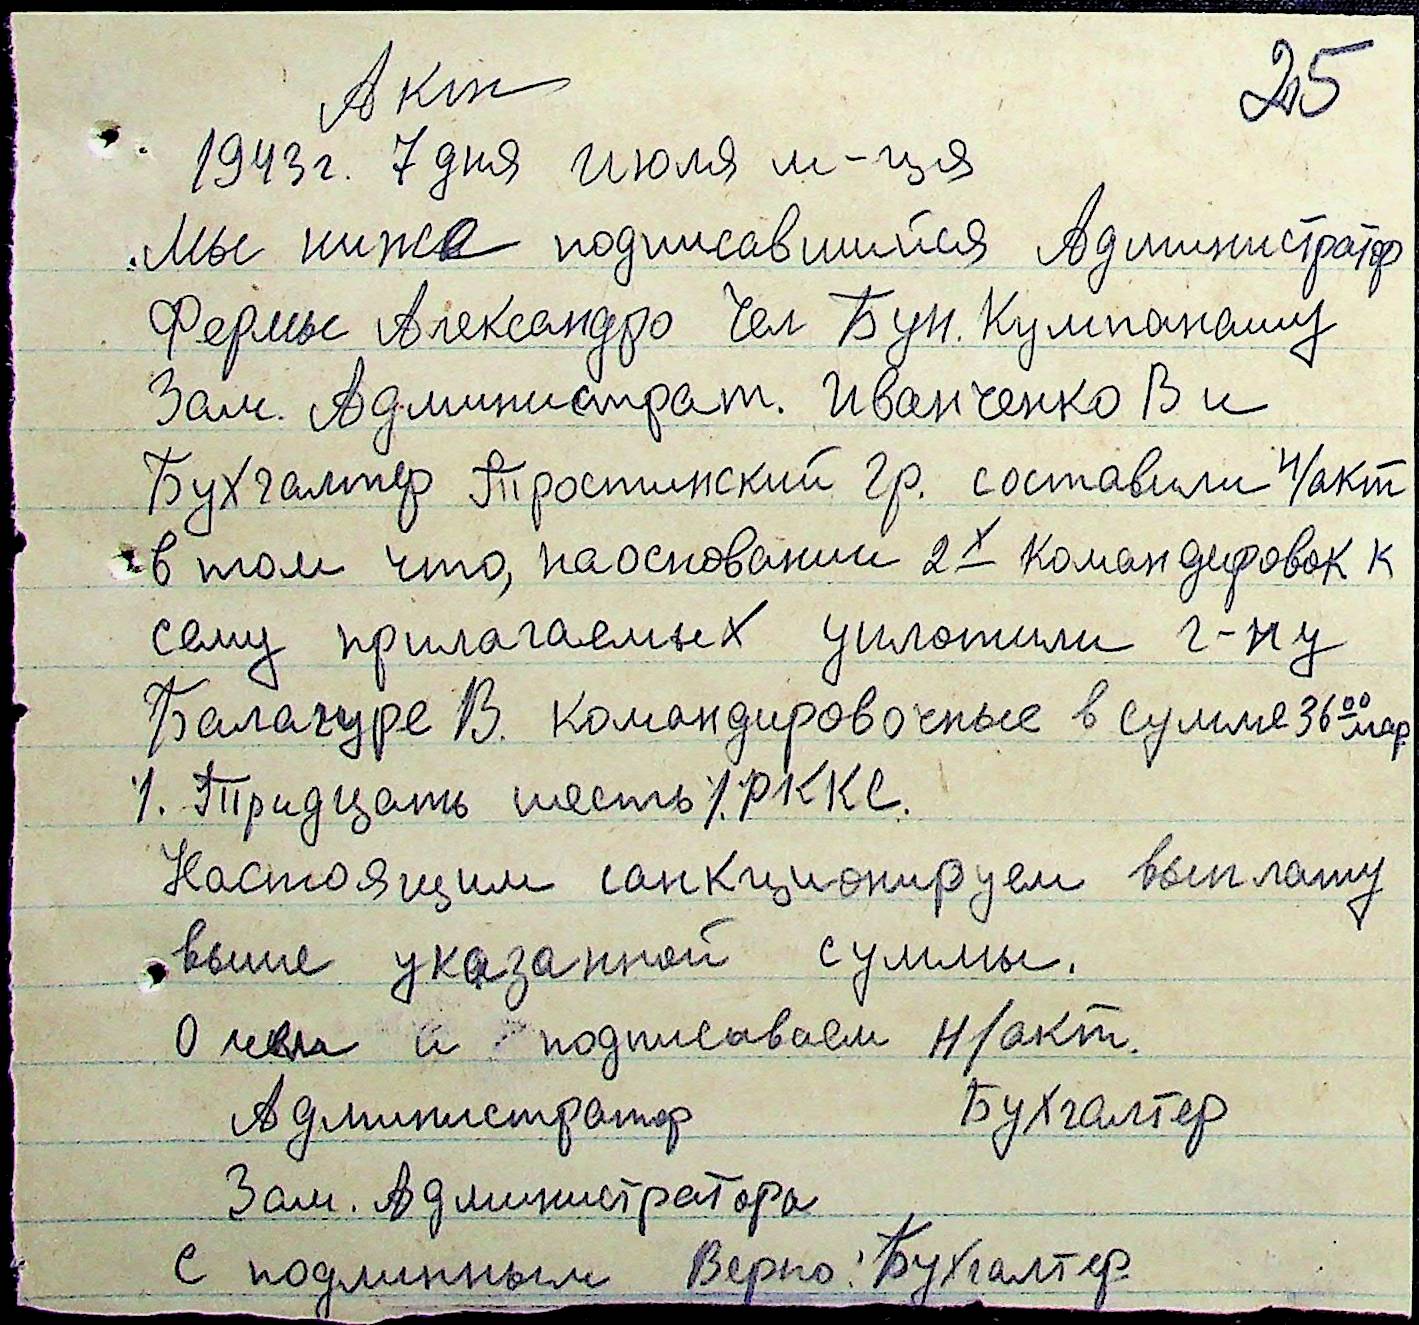 Акт
25
1943г. 7 дня июля м-ця
Мы ниже подписавшийся Администратор
Фермы Александро Чел Бун. Кумпанашу
Зам. Администрат. Иванченко В и
Бухгалтер Тростинский Гр. составили н/акт
в том что, на основании 2х командировок к
сему прилагаемых уплотили г-ну
Балагуре В. командировочные в сумме 36 00 мар
%. Тридцать шесть %. РККС.
Настоящим санкционируем выплату
выше указанной суммы.
О чем и подписываем н/акт.
Администратор Бухгалтер
Зам. Администратора
С подлинным Верно: Бухгалтер